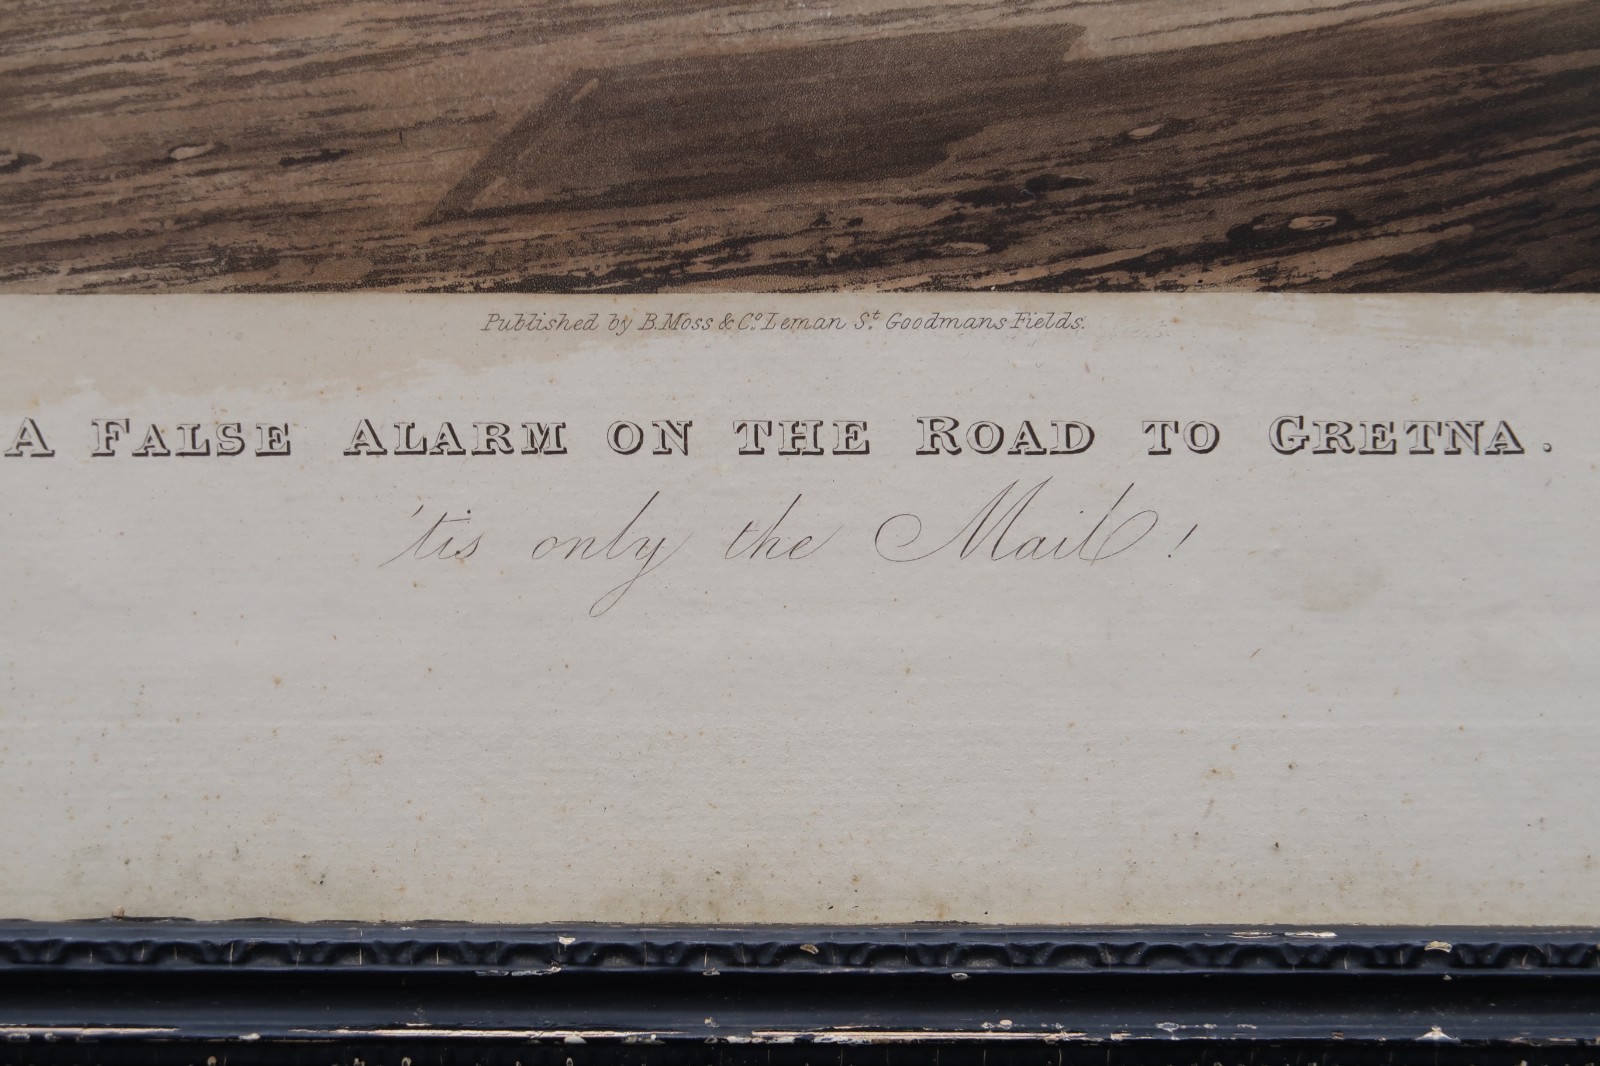 Published by B. Moss & Co. Leman St. Goodmans Fields.
A FALSE ALARM ON THE ROAD TO GRETNA.
'tis only the Mail!